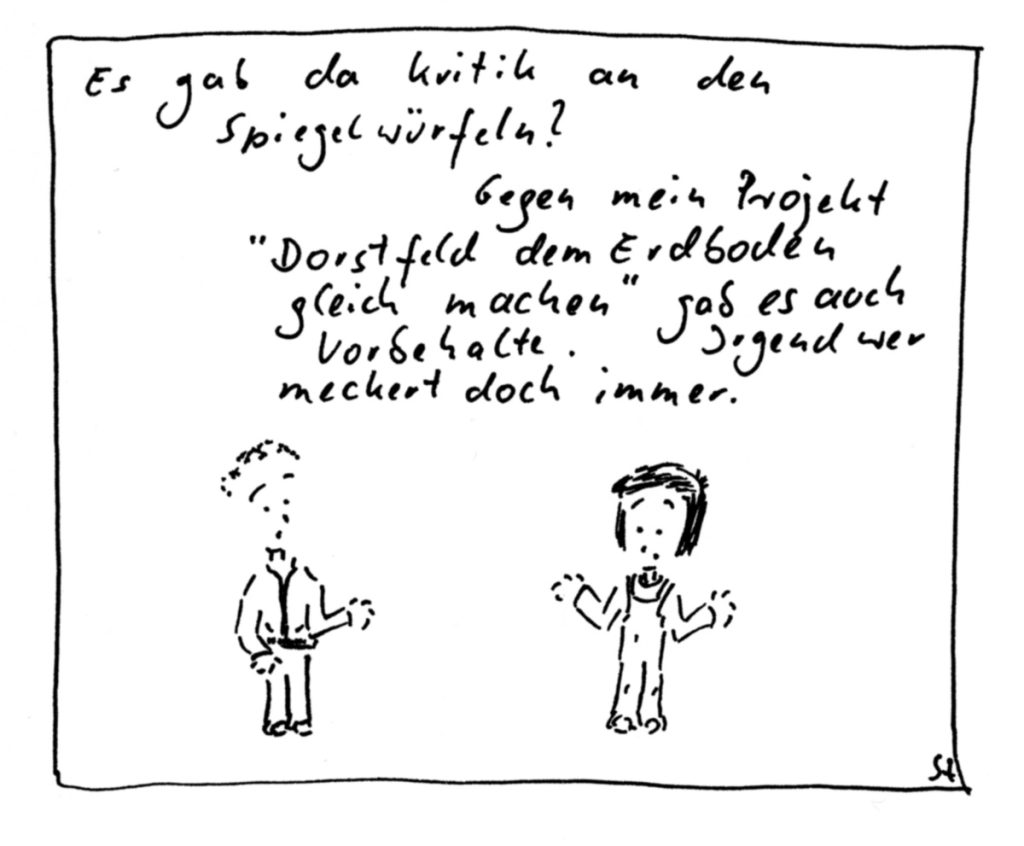 Es gab da Kritik an den
Spiegelwürfeln?
Gegen mein Projekt
"Dorstfeld dem Erdboden
gleich machen" gab es auch
Vorbehalte. Irgendwer
meckert doch immer.